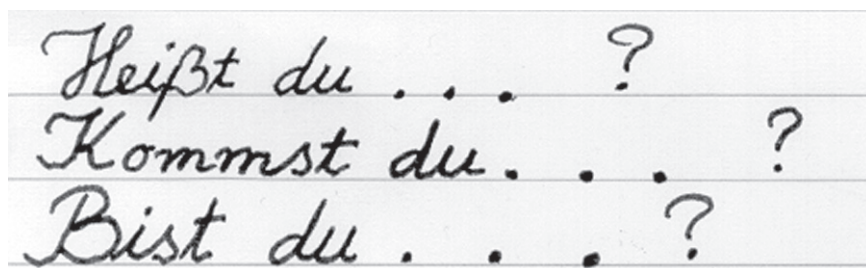 Heißt du . . . ?
Kommst du . . . ?
Bist du . . . ?